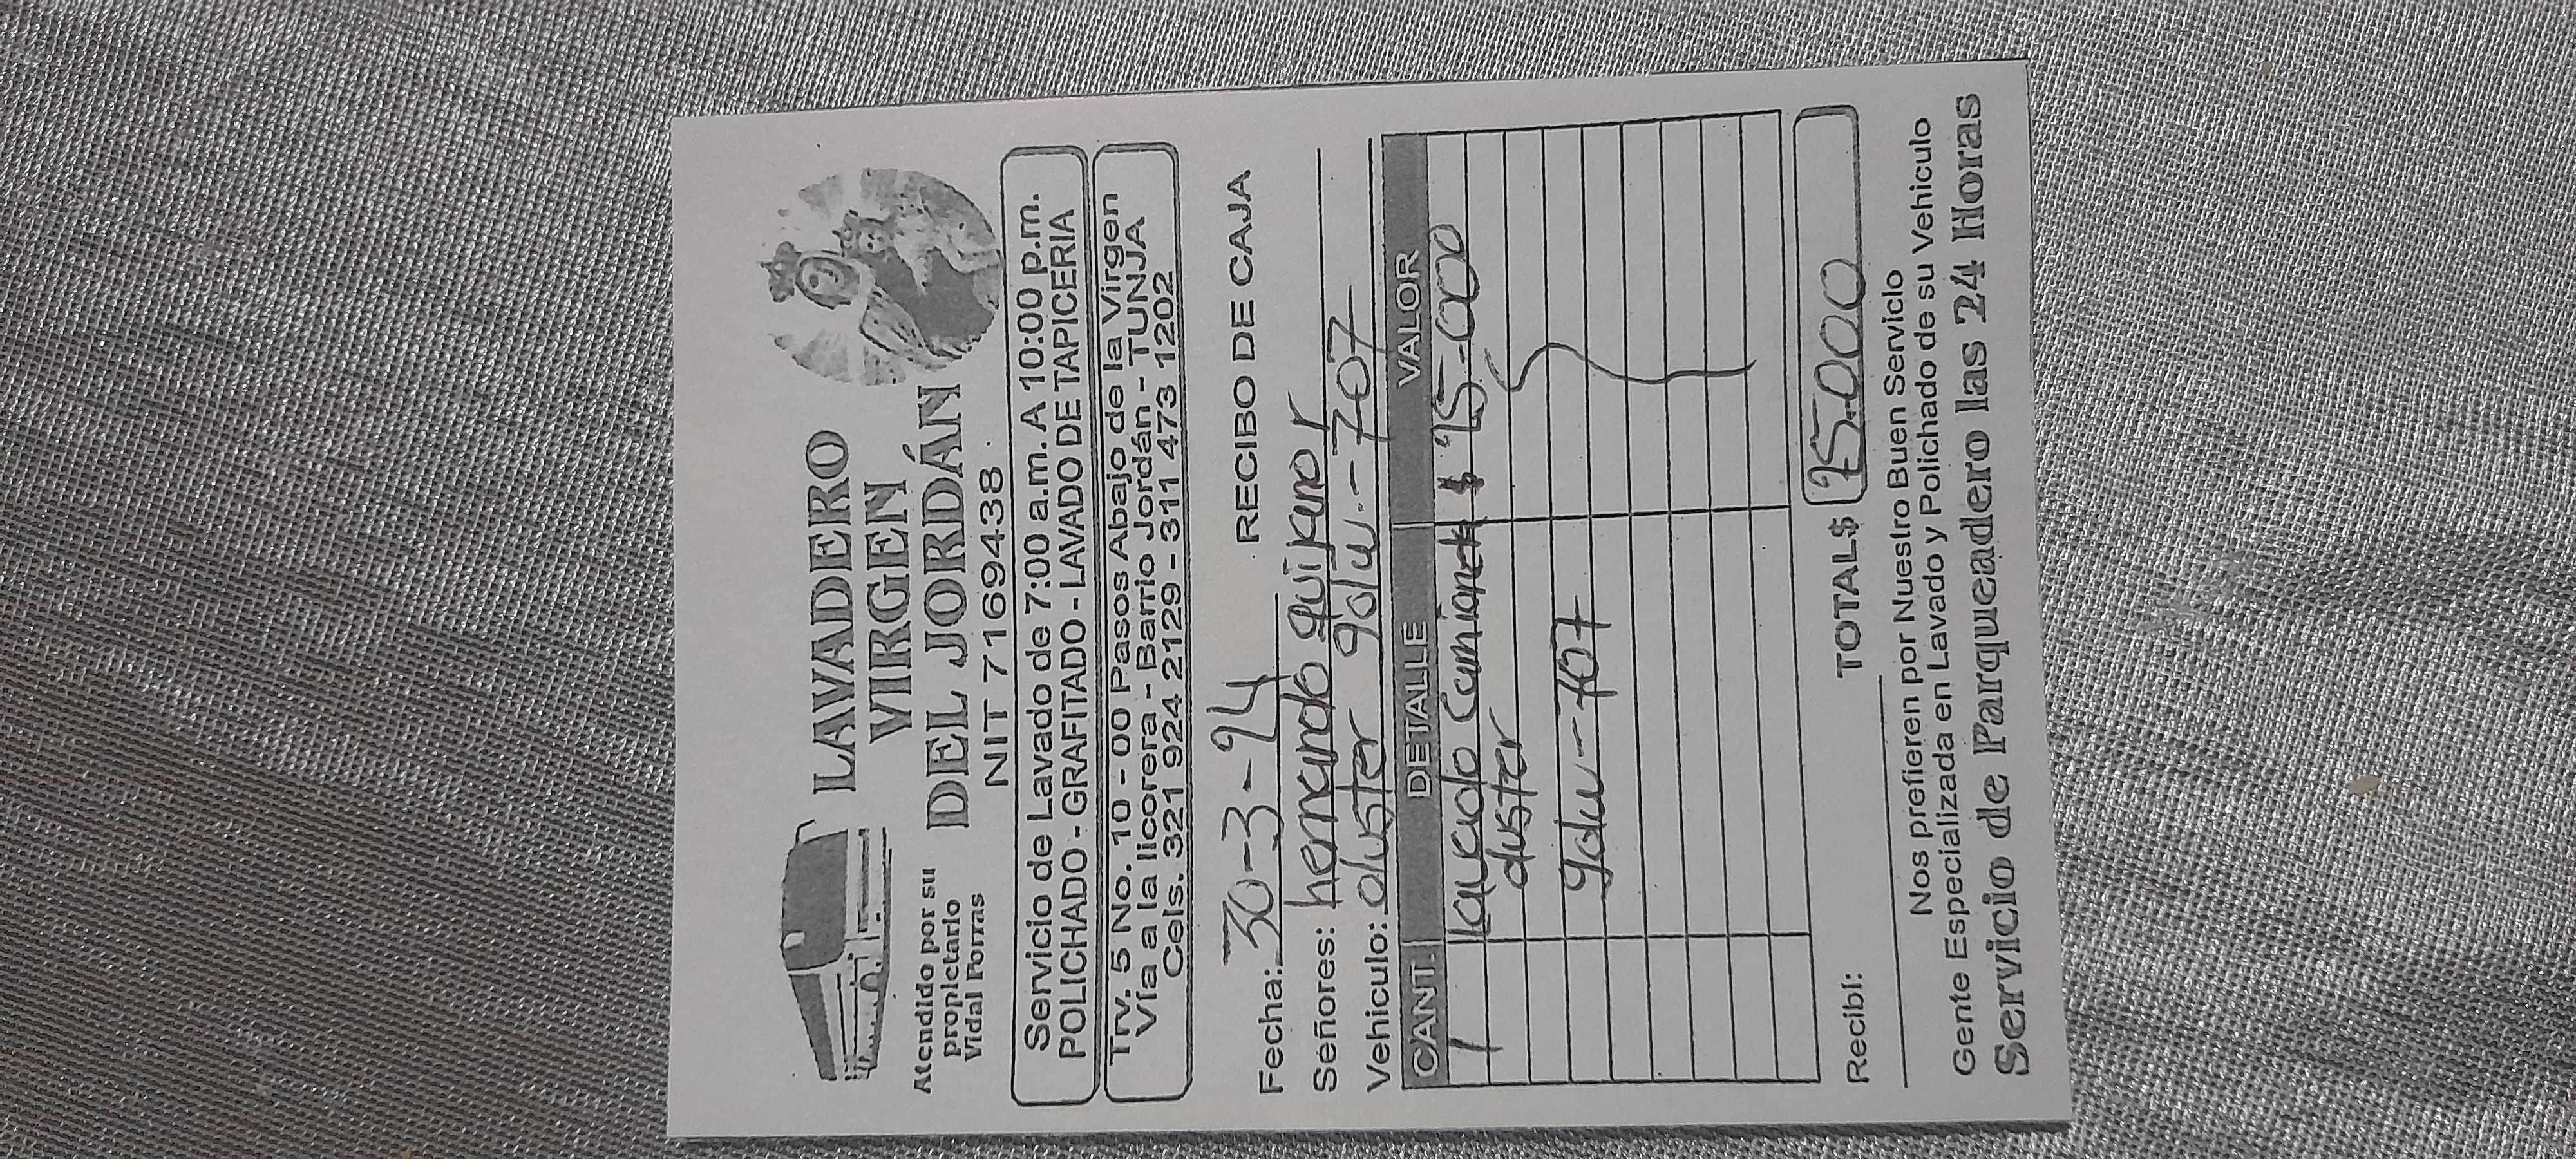 LAVADERO
VIRGEN
DEL JORDÁN
NIT 71694438
Atendido por su
propietario
Vidal Porras
Servicio de Lavado de 7:00 a.m. A 10:00 p.m.
POLICHADO - GRAFITADO - LAVADO DE TAPICERIA
Trv. 5 No. 10 - 00 Pasos Abajo de la Virgen
Vía a la licorera - Barrio Jordán - TUNJA
Cels. 321 924 2129 - 311 473 1202
Fecha: 30-3-24 RECIBO DE CAJA
Señores: hernando quijano
Vehiculo: duster 707
CANT. DETALLE VALOR
1 lavado camioneta $
duster
707
TOTAL$
Recibí:
Nos prefieren por Nuestro Buen Servicio
Gente Especializada en Lavado y Polichado de su Vehiculo
Servicio de Parqueadero las 24 Horas